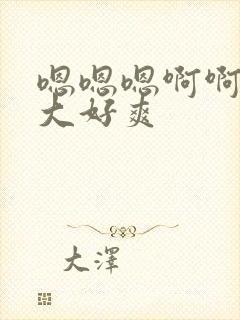 嗯嗯嗯啊啊
大好爽
大澤